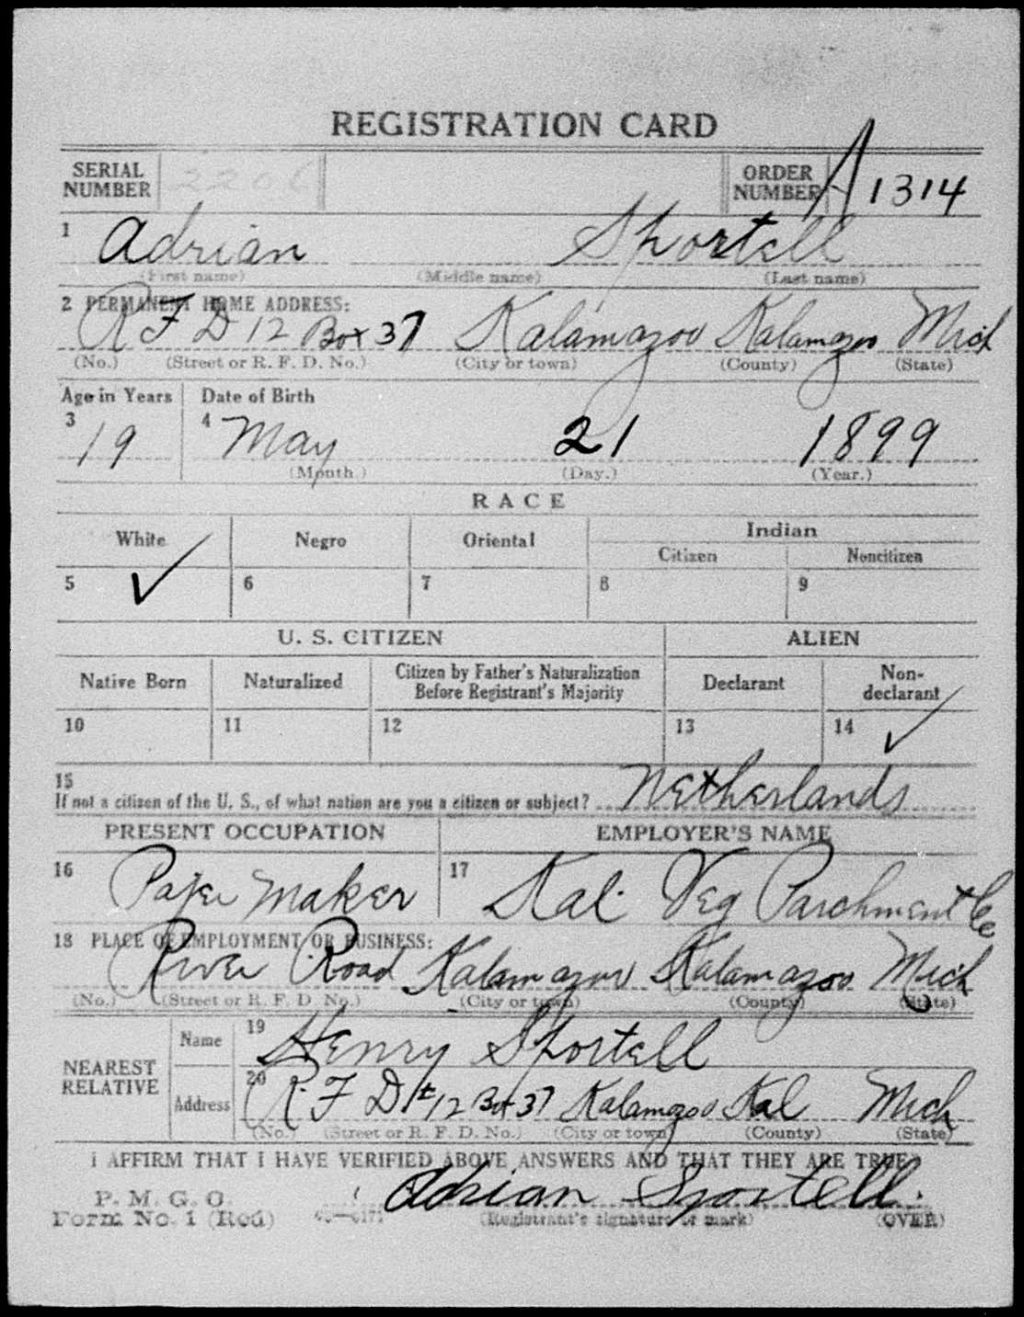 REGISTRATION CARD
SERIAL NUMBER 2206 ORDER NUMBER A 1314
1 Adrian Sportell
(First name) (Middle name) (Last name)
2 PERMANENT HOME ADDRESS:
R F D 12 Box 37 Kalamazoo Kalamazoo Mich
(No.) (Street or R. F. D. No.) (City or town) (County) (State)
Age in Years Date of Birth
3 19 4 May 21 1899
(Month.) (Day.) (Year.)
RACE
White Negro Oriental Indian
Citizen Noncitizen
5 ✓ 6 7 8 9
U. S. CITIZEN ALIEN
Native Born Naturalized Citizen by Father's Naturalization Before Registrant's Majority Declarant Non-declarant
10 11 12 13 14 ✓
15 If not a citizen of the U. S., of what nation are you a citizen or subject? Netherlands
PRESENT OCCUPATION EMPLOYER'S NAME
16 Paper Maker 17 Kal. Veg Parchment Co
18 PLACE OF EMPLOYMENT OR BUSINESS:
River Road Kalamazoo Kalamazoo Mich
(No.) (Street or R. F. D No.) (City or town) (County) (State)
NEAREST RELATIVE
Name 19 Henry Sportell
Address 20 R F D 12 Box 37 Kalamazoo Kal Mich
(No.) (Street or R. F. D. No.) (City or town) (County) (State)
I AFFIRM THAT I HAVE VERIFIED ABOVE ANSWERS AND THAT THEY ARE TRUE
P. M. G. O.
Form No. 1 (Red) Adrian Sportell.
(Registrant's signature or mark) (OVER)